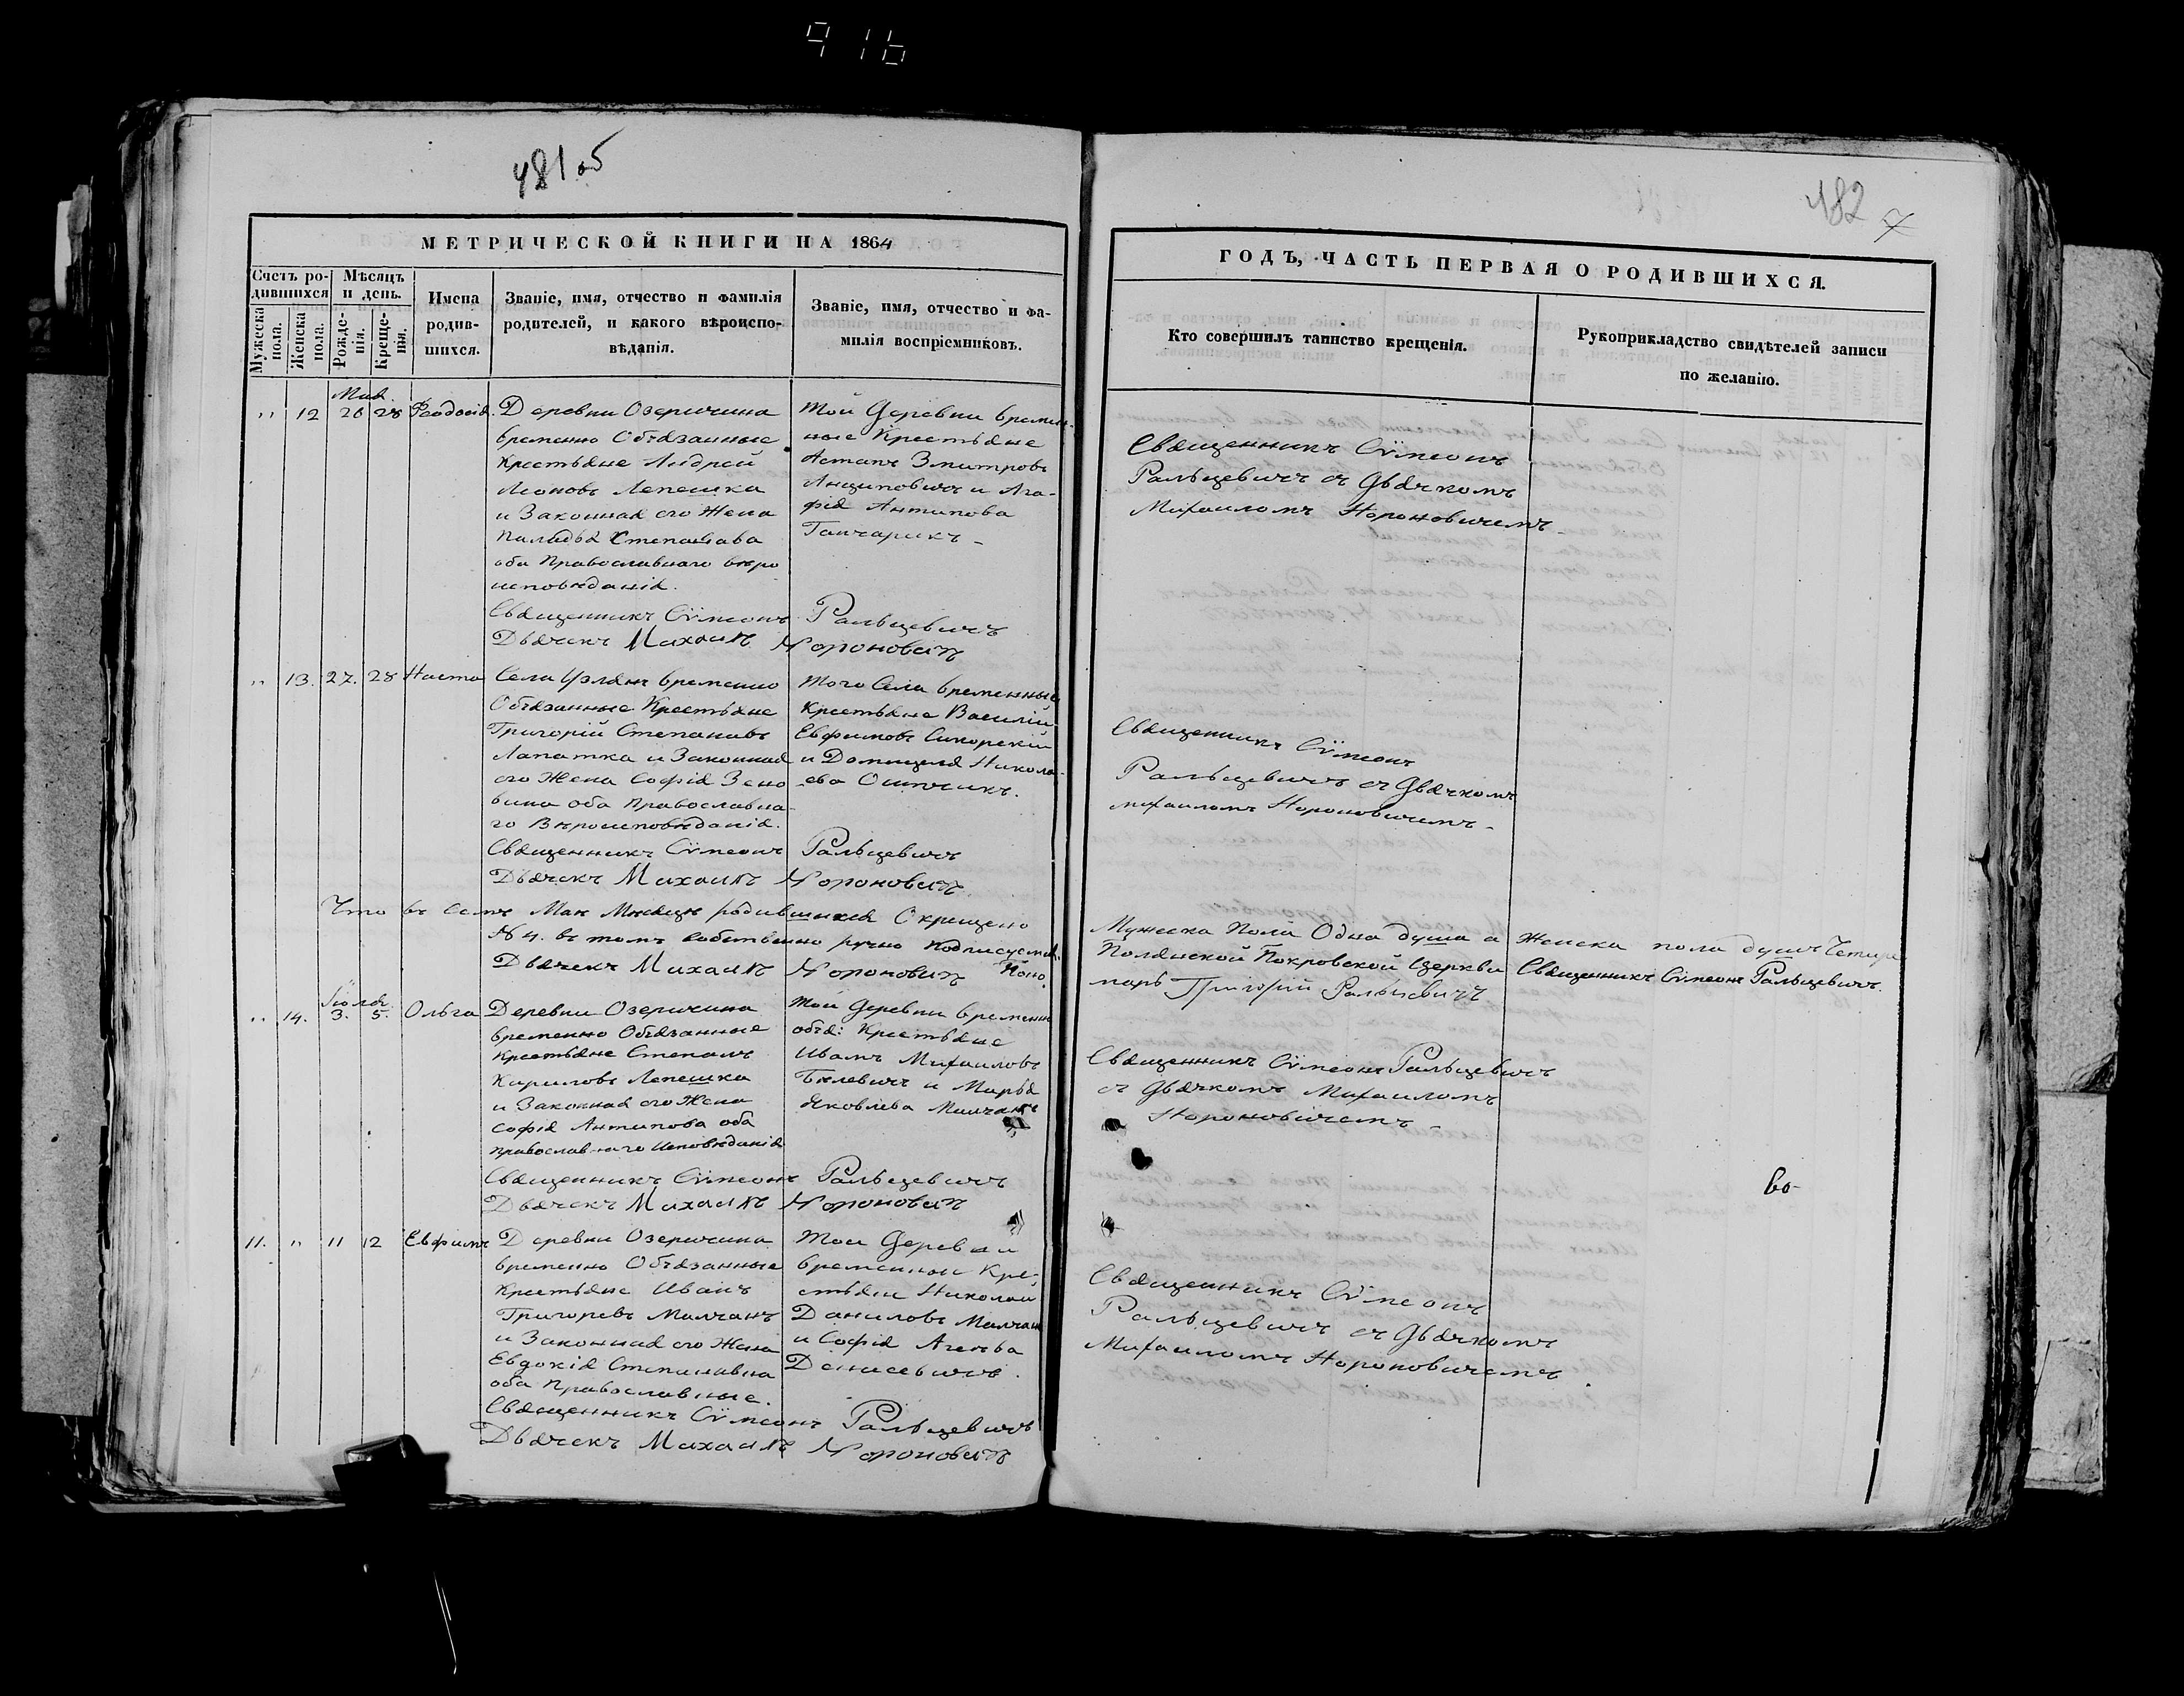 916
481 об
МЕТРИЧЕСКОЙ КНИГИ НА 1864
Счетъ ро-
дившихся
Мѣсяцъ
и день.
Мужеска
пола.
Женска
пола.
Рожде-
нія.
Креще-
нія.
Имена
родив-
шихся.
Званіе, имя, отчество и фамилія
родителей, и какого вѣроиспо-
вѣданія.
Званіе, имя, отчество и фа-
милія воспріемниковъ.
Маія
" 12 26 28 Феодосія.
Деревни Озеричина
временно Обязанные
Крестьяне Андрей
Леоновъ Лепешка
и Законная его Жена
Степанава
оба Православнаго вѣро
исповѣданія.
Той Деревни времен-
ные Крестьяне
Астапъ Змитровъ
Анциповичъ и Ага-
фія Антипова
Ганчарикъ-
Священникъ Сѵмеонъ Ральцевичъ
Дьячекъ Михаилъ Нороновичъ
" 13. 27. 28 Наста
Села Узлянъ временно
Обязанные Крестьяне
Григорій Степановъ
Лапатка и Законная
его Жена Софія Зено
вина оба Православна-
го Вѣроисповѣданія.
Того Села временные
Крестьяне Василій
Евфимовъ Сикорскій
и Домицеля Никола-
ева
Священникъ Сѵмеонъ Ральцевичъ
Дьячекъ Михаилъ Нороновичъ
Что въ семъ Маи Мѣсяцѣ родившихся Окрещено
№ въ томъ собственно ручно подписуемся.
Дьячекъ Михаилъ Нороновичъ Поно.
Іюля.
" 14. 3. 5. Ольга
Деревни Озеричина
временно Обязанные
Крестьяне Степанъ
Кириловъ Лепешка
и Законная его Жена
Софія Антипова оба
православнаго Исповѣданія
Той Деревни временно
обяз: Крестьяне
Иванъ Михаиловъ
Бѣлевичъ и Марья
Яковлева Молчанъ
Священникъ Сѵмеонъ Ральцевичъ
Дьячекъ Михаилъ Нороновичъ
11. " 11 12 Евфимъ
Деревни Озеричина
временно Обязанные
Крестьяне Иванъ
Григоревъ Малчанъ
и Законная его Жена
Евдокія Степановна
оба Православные.
Той Деревни
временнои Кре-
стьяни Николай
Даниловъ Малчанъ
и Софія
Денисевичъ.
Священникъ Сѵмеонъ Ральцевичъ
Дьячекъ Михаилъ Нороновичъ
482
7
ГОДЪ, ЧАСТЬ ПЕРВАЯ О РОДИВШИХСЯ.
Кто совершилъ таинство крещенія.
Рукоприкладство свидѣтелей записи
по желанію.
Священникъ Сѵмеонъ
Ральцевичъ съ Дьячкомъ
Михаиломъ Нороновичемъ-
Священникъ Сѵмеонъ
Ральцевичъ съ Дьячкомъ
михаиломъ Нороновичемъ-
Мужеска Пола Одна душа а Женска пола душъ Четыре
Полянской Покровской Церкви Священникъ Сѵмеонъ Ральцевичъ.
марь Григорій Ральцевичъ
Священникъ Сѵмеонъ Ральцевичъ
съ Дьячкомъ Михаиломъ
Нороновичемъ
во-
Священникъ Сѵмеонъ
Ральцевичъ съ Дьячкомъ
Михаиломъ Нороновичемъ.